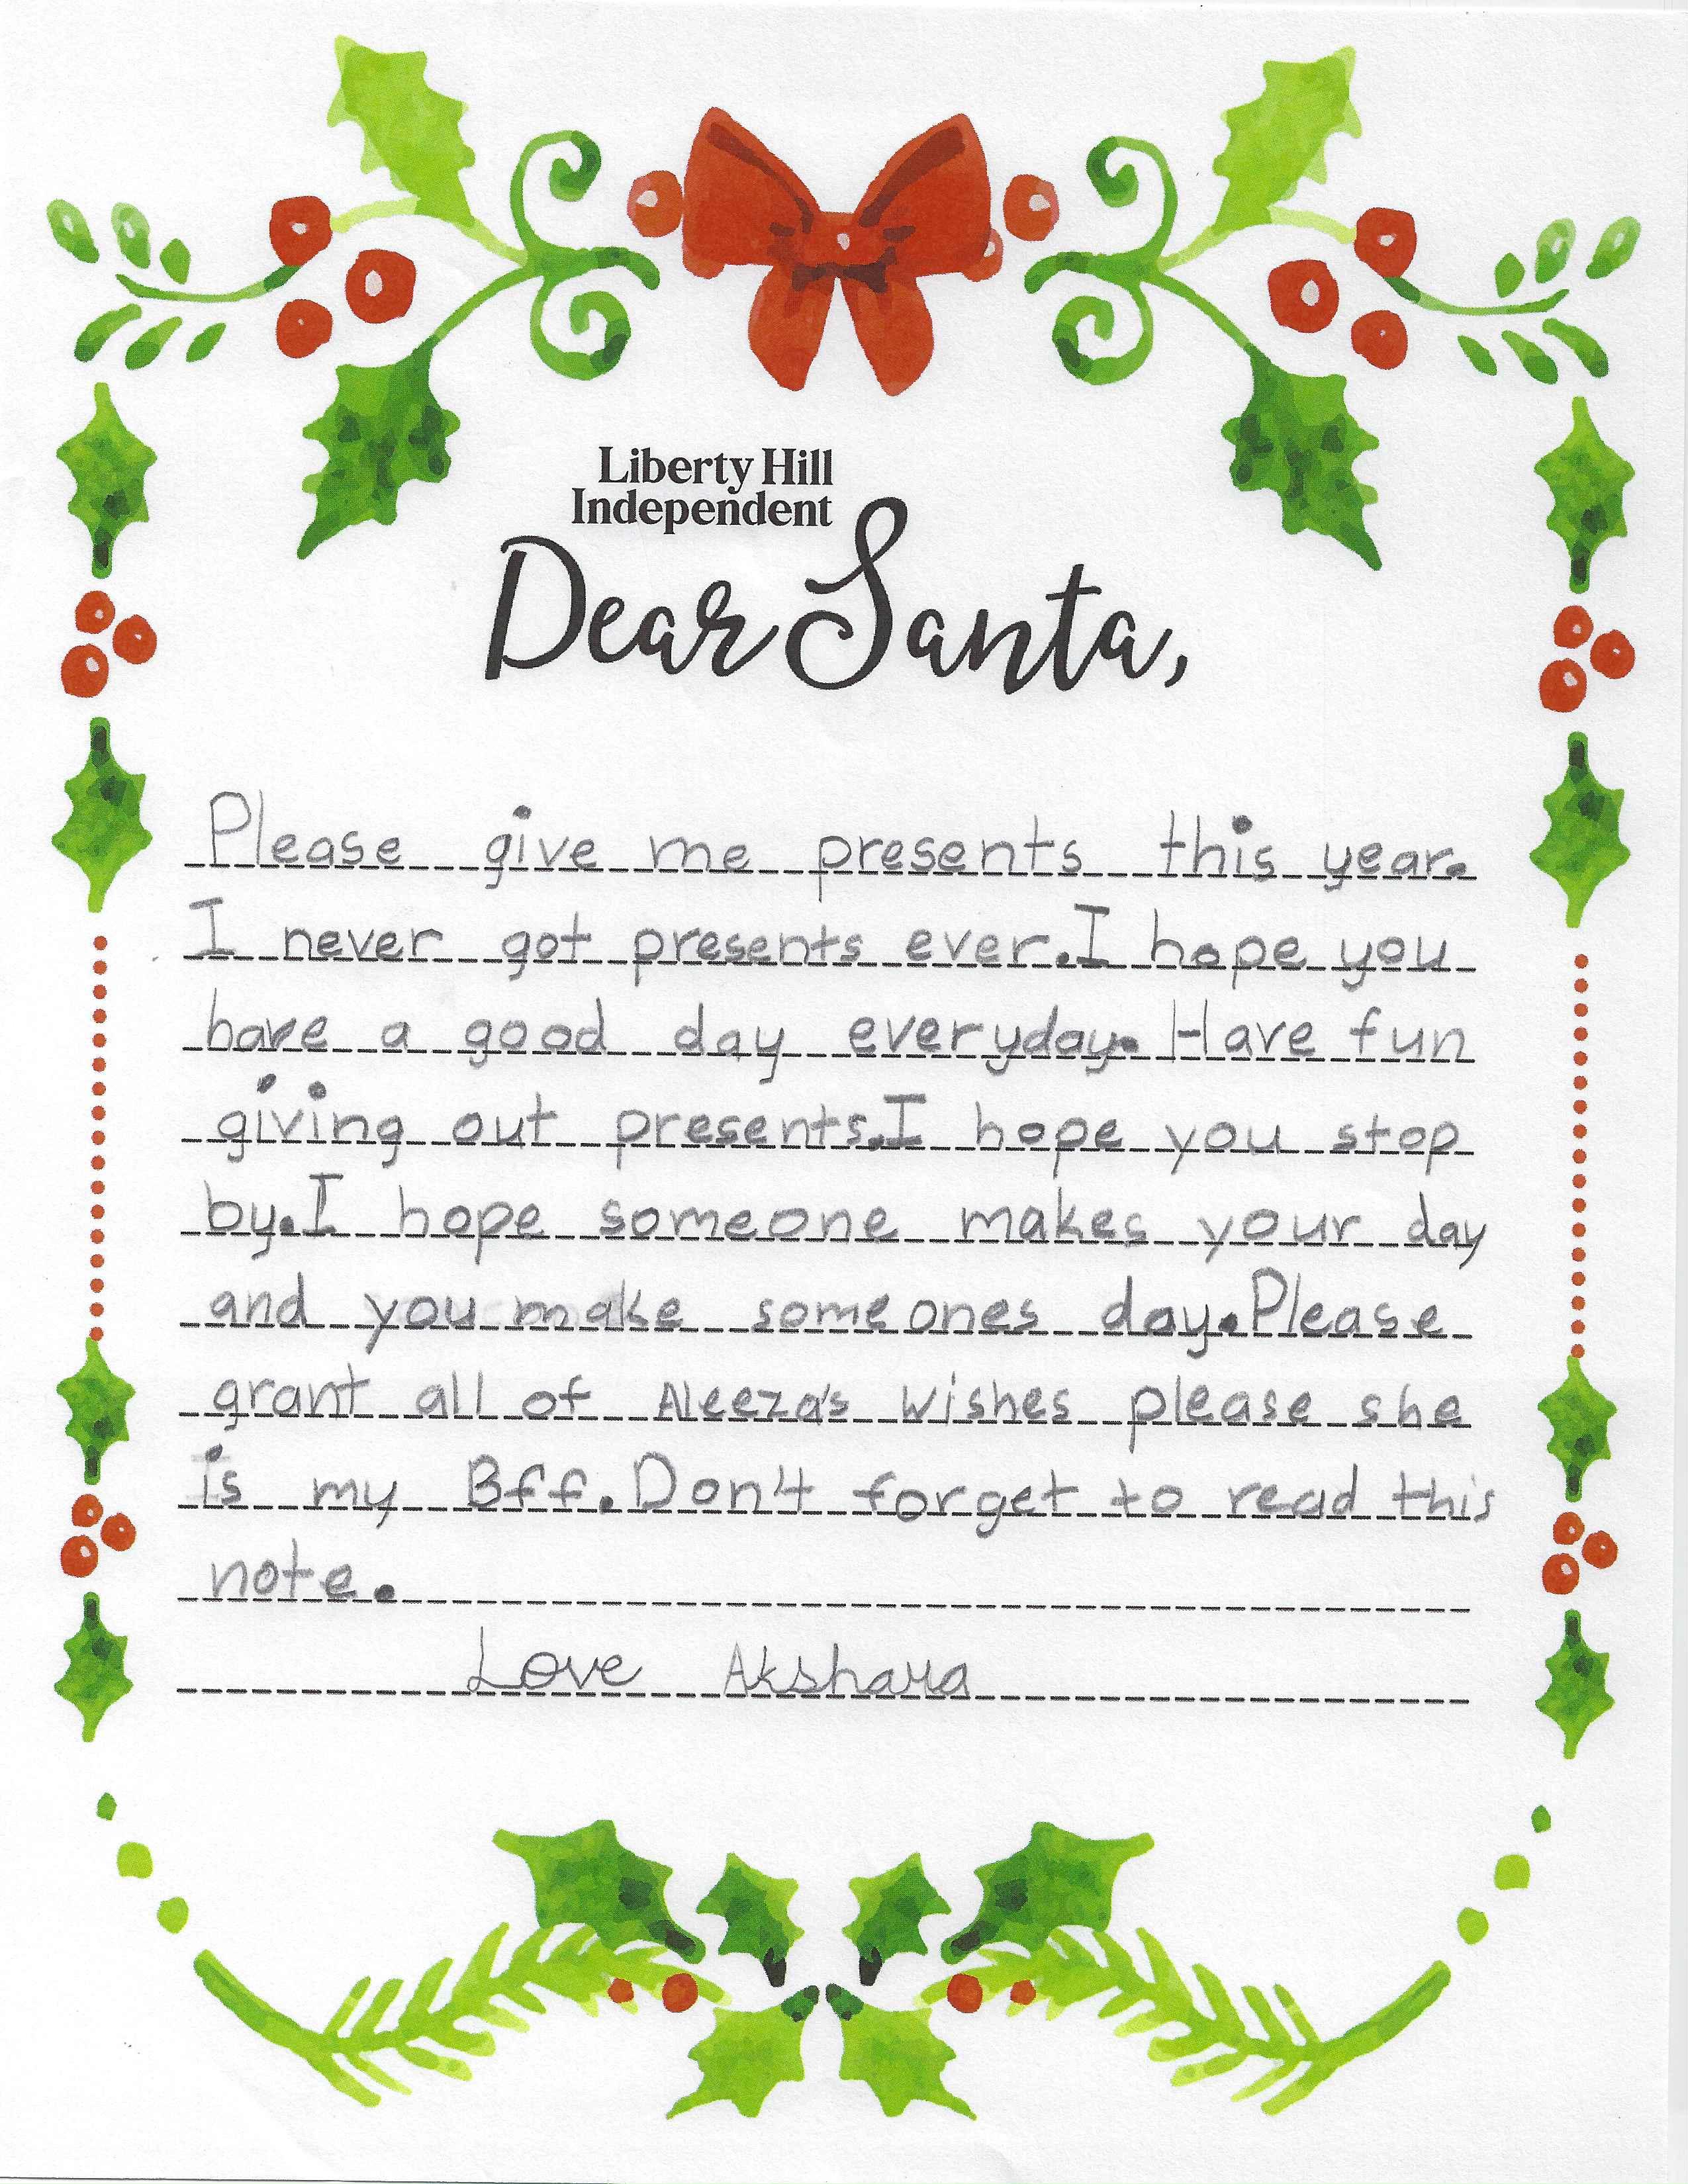 Liberty Hill
Independent
Dear Santa,
Please give me presents this year.
I never got presents ever.I hope you
have a good day everyday. Have fun
giving out presents.I hope you stop
by.I hope someone makes your day
and you make someones day.Please
grant all of Aleeza's wishes please she
is my Bff.Don't forget to read this
note.
Love Akshara